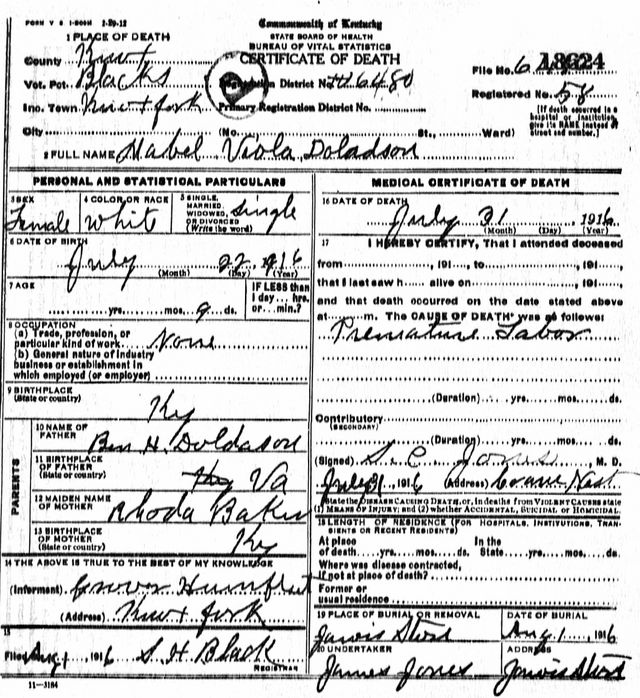 FORM V S 1-500M 1-20-12
Commonwealth of Kentucky
STATE BOARD OF HEALTH
BUREAU OF VITAL STATISTICS
CERTIFICATE OF DEATH
1 PLACE OF DEATH
County Knox
Vot. Pct. Blacks
Inc. Town Knox fork
City (No. St., Ward)
Registration District No. 6480
Primary Registration District No.
File No. 18624
Registered No. 58
[If death occurred in a hospital or institution, give its NAME instead of street and number.]
2 FULL NAME Mabel Viola Doladson
PERSONAL AND STATISTICAL PARTICULARS
3 SEX Female
4 COLOR OR RACE White
5 SINGLE, MARRIED, WIDOWED, OR DIVORCED (Write the word) Single
6 DATE OF BIRTH
July 22 1916
(Month) (Day) (Year)
7 AGE
yrs. mos. 9 ds.
IF LESS than 1 day... hrs. or... min.?
8 OCCUPATION
(a) Trade, profession, or particular kind of work None
(b) General nature of industry business or establishment in which employed (or employer)
9 BIRTHPLACE
(State or country) Ky
PARENTS
10 NAME OF FATHER Ben H. Doldason
11 BIRTHPLACE OF FATHER (State or country) Va
12 MAIDEN NAME OF MOTHER Rhoda Baker
13 BIRTHPLACE OF MOTHER (State or country) Ky
14 THE ABOVE IS TRUE TO THE BEST OF MY KNOWLEDGE
(Informant)
(Address) Knox fork
15
Filed Aug 1 1916 S. H. Black
REGISTRAR
11-3184
MEDICAL CERTIFICATE OF DEATH
16 DATE OF DEATH
July 31 1916
(Month) (Day) (Year)
17 I HEREBY CERTIFY, That I attended deceased
from, 191, to, 191,
that I last saw h alive on, 191,
and that death occurred on the date stated above
at m. The CAUSE OF DEATH* was as follows:
Premature Labor
(Duration) yrs. mos. ds.
Contributory
(SECONDARY)
(Duration) yrs. mos. ds.
(Signed) S. C. Jones, M. D.
July 31, 1916 (Address)
*State the DISEASE CAUSING DEATH, or, in deaths from VIOLENT CAUSES state (1) MEANS OF INJURY; and (2) whether ACCIDENTAL, SUICIDAL or HOMICIDAL.
18 LENGTH OF RESIDENCE (FOR HOSPITALS, INSTITUTIONS, TRANSIENTS OR RECENT RESIDENTS)
At place of death yrs. mos. ds. In the State yrs. mos. ds.
Where was disease contracted, if not at place of death?
Former or usual residence
19 PLACE OF BURIAL OR REMOVAL
Jarvis Store
DATE OF BURIAL
Aug 1, 1916
20 UNDERTAKER
James Jones
ADDRESS
Jarvis Store